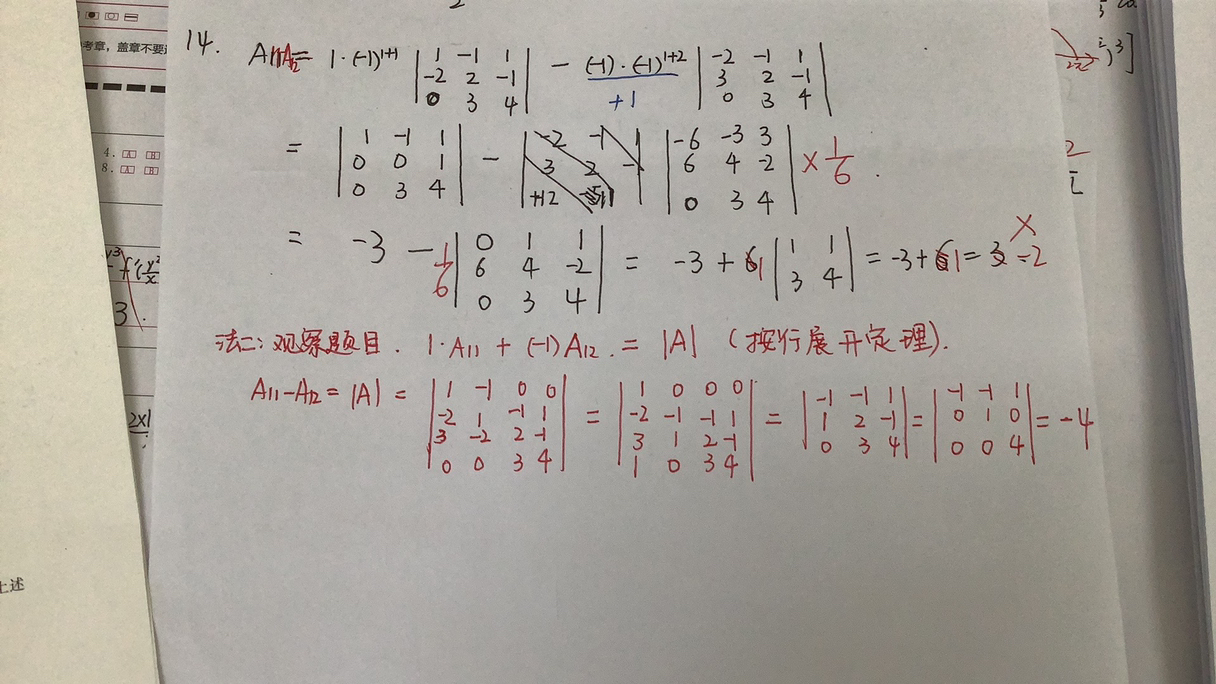 考章，盖章不要
4. A B
8. A B
14. A11 - A12 = 1·(-1)^{1+1} | 1 -1 1 ; -2 2 -1 ; 0 3 4 | - (-1)·(-1)^{1+2} | -2 -1 1 ; 3 2 -1 ; 0 3 4 |
+1
= | 1 -1 1 ; 0 0 1 ; 0 3 4 | - | -6 -3 3 ; 6 4 -2 ; 0 3 4 | × 1/6 .
= -3 - 1/6 | 0 1 1 ; 6 4 -2 ; 0 3 4 | = -3 + 1 | 1 1 ; 3 4 | = -3 + 1 = -2 ×
法二: 观察题目. 1·A11 + (-1)A12 . = |A| (按行展开定理).
A11-A12 = |A| = | 1 -1 0 0 ; -2 1 -1 1 ; 3 -2 2 -1 ; 0 0 3 4 | = | 1 0 0 0 ; -2 -1 -1 1 ; 3 1 2 -1 ; 1 0 3 4 | = | -1 -1 1 ; 1 2 -1 ; 0 3 4 | = | -1 -1 1 ; 0 1 0 ; 0 0 4 | = -4
上述